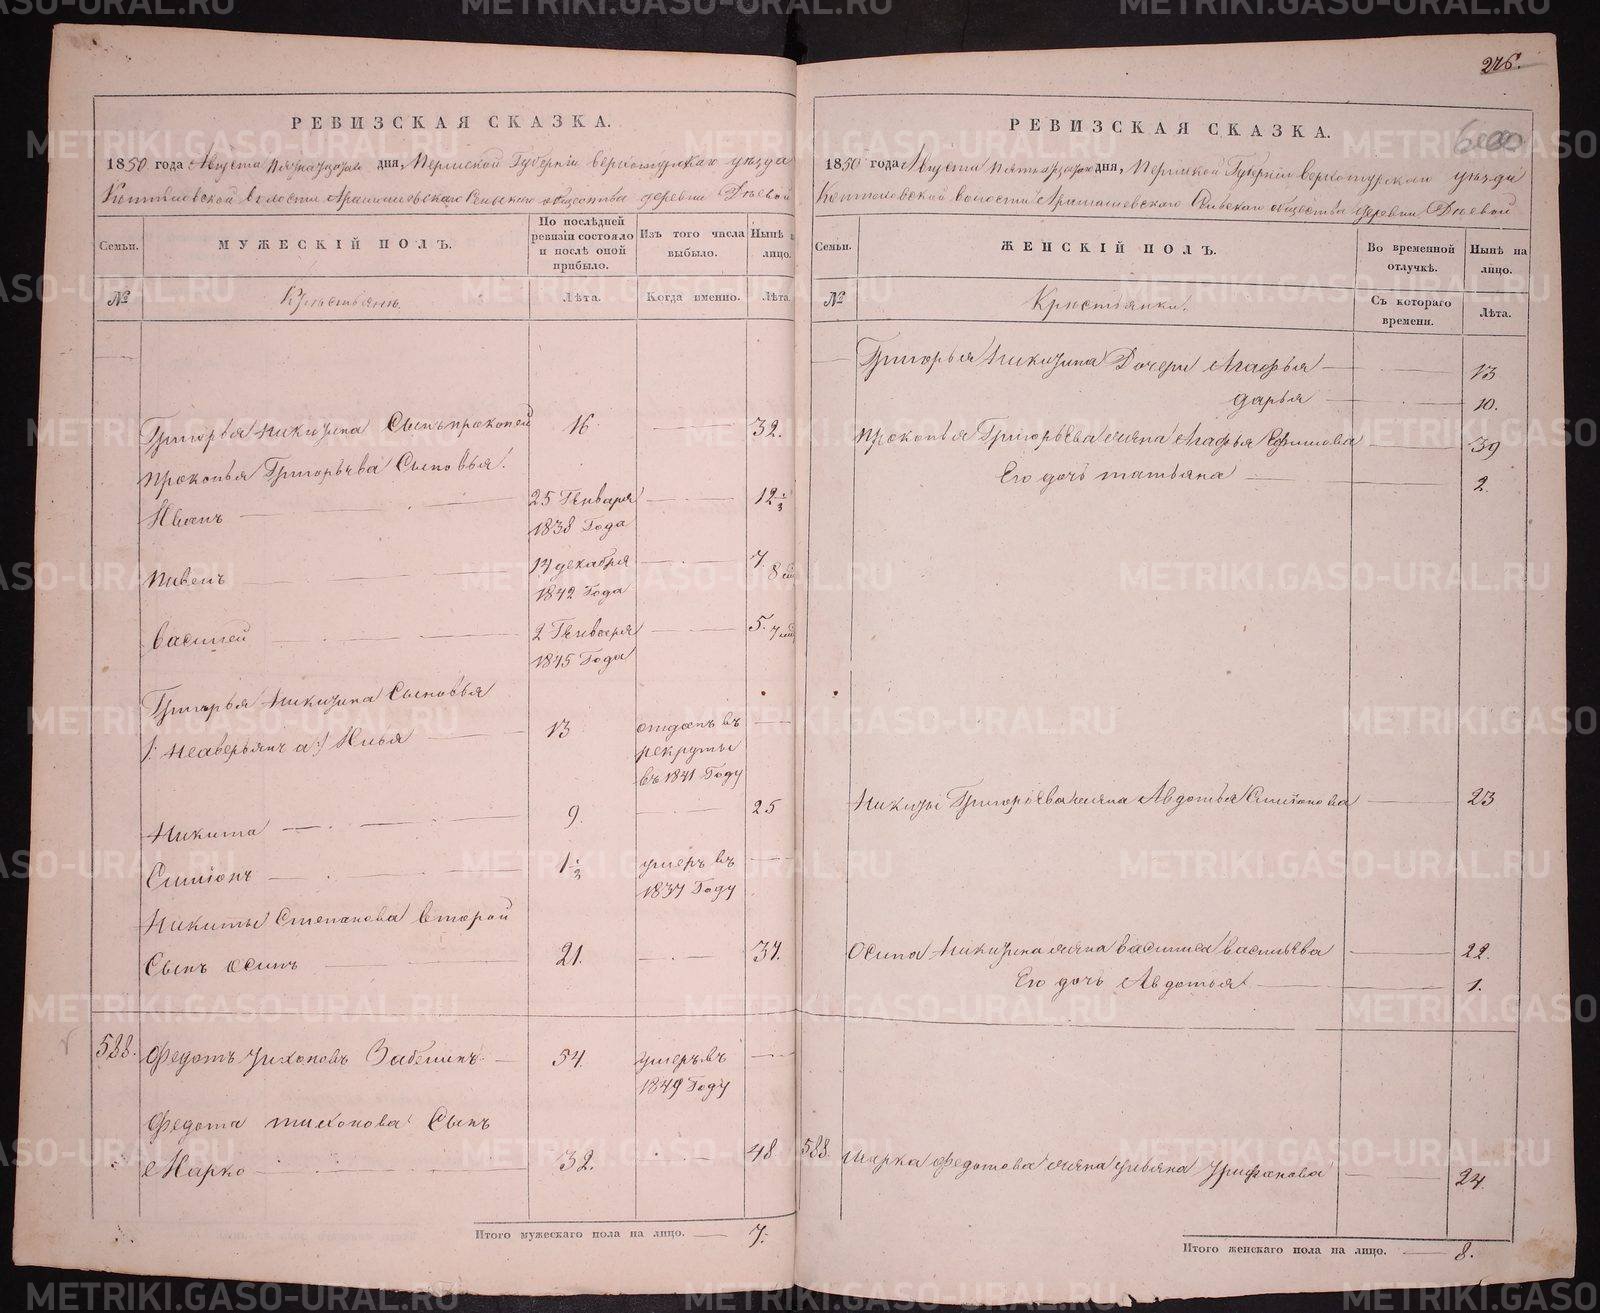 РЕВИЗСКАЯ СКАЗКА.
1850 года Августа пятнадцатаго дня, Пермской Губерніи верхотурскаго уѣзда
волости Арамашевскаго Сельскаго общества деревни
Семьи.
МУЖЕСКІЙ ПОЛЪ.
По послѣдней ревизіи состояло и послѣ оной прибыло.
Изъ того числа выбыло.
Нынѣ на лицо.
№
Крестьянъ.
Лѣта.
Когда именно.
Лѣта.
Григорья Никитина Сынъ прокопей 16 32.
прокопья Григорьева Сыновья.
Иванъ 25 Генваря 1838 Года 12 ½
пивенъ 14 декабря 1842 Года 7. 8
Василей 2 Генваря 1845 Года 5. 7
Григорья Никитина Сыновья
Илья 13 отданъ въ рекруты въ 1841 Году
Никита 9. 25
Симіонъ 1 ½ умеръ въ 1837 Году
Никиты Степанова второй
Сынъ осипъ 21. 37.
588. Федотъ тихоновъ 54. умеръ въ 1849 Году
Федота тихонова Сынъ
Марко 32. 48
Итого мужескаго пола на лицо. 7.
276.
РЕВИЗСКАЯ СКАЗКА.
1850 года Августа пятнадцатаго дня, Пермской Губерніи верхотурскаго уѣзда
волости Арамашевскаго Сельскаго общества деревни
Семьи.
ЖЕНСКІЙ ПОЛЪ.
Во временной отлучкѣ.
Нынѣ на лицо.
№
Крестьянки.
Съ котораго времени.
Лѣта.
Григорья Никитина Дочери Агафья 13
дарья 10.
прокопья Григорьева жена Агафья Ефимова 39
Его дочь татьяна 2.
Никиты Григорьева жена Авдотья Симіонова 23
Осипа Никитина жена василиса васильева 22.
Его дочь Авдотья 1.
588. Марка федотова жена ульяна трифонова 24.
Итого женскаго пола на лицо. 8.
METRIKI.GASO-URAL.RU